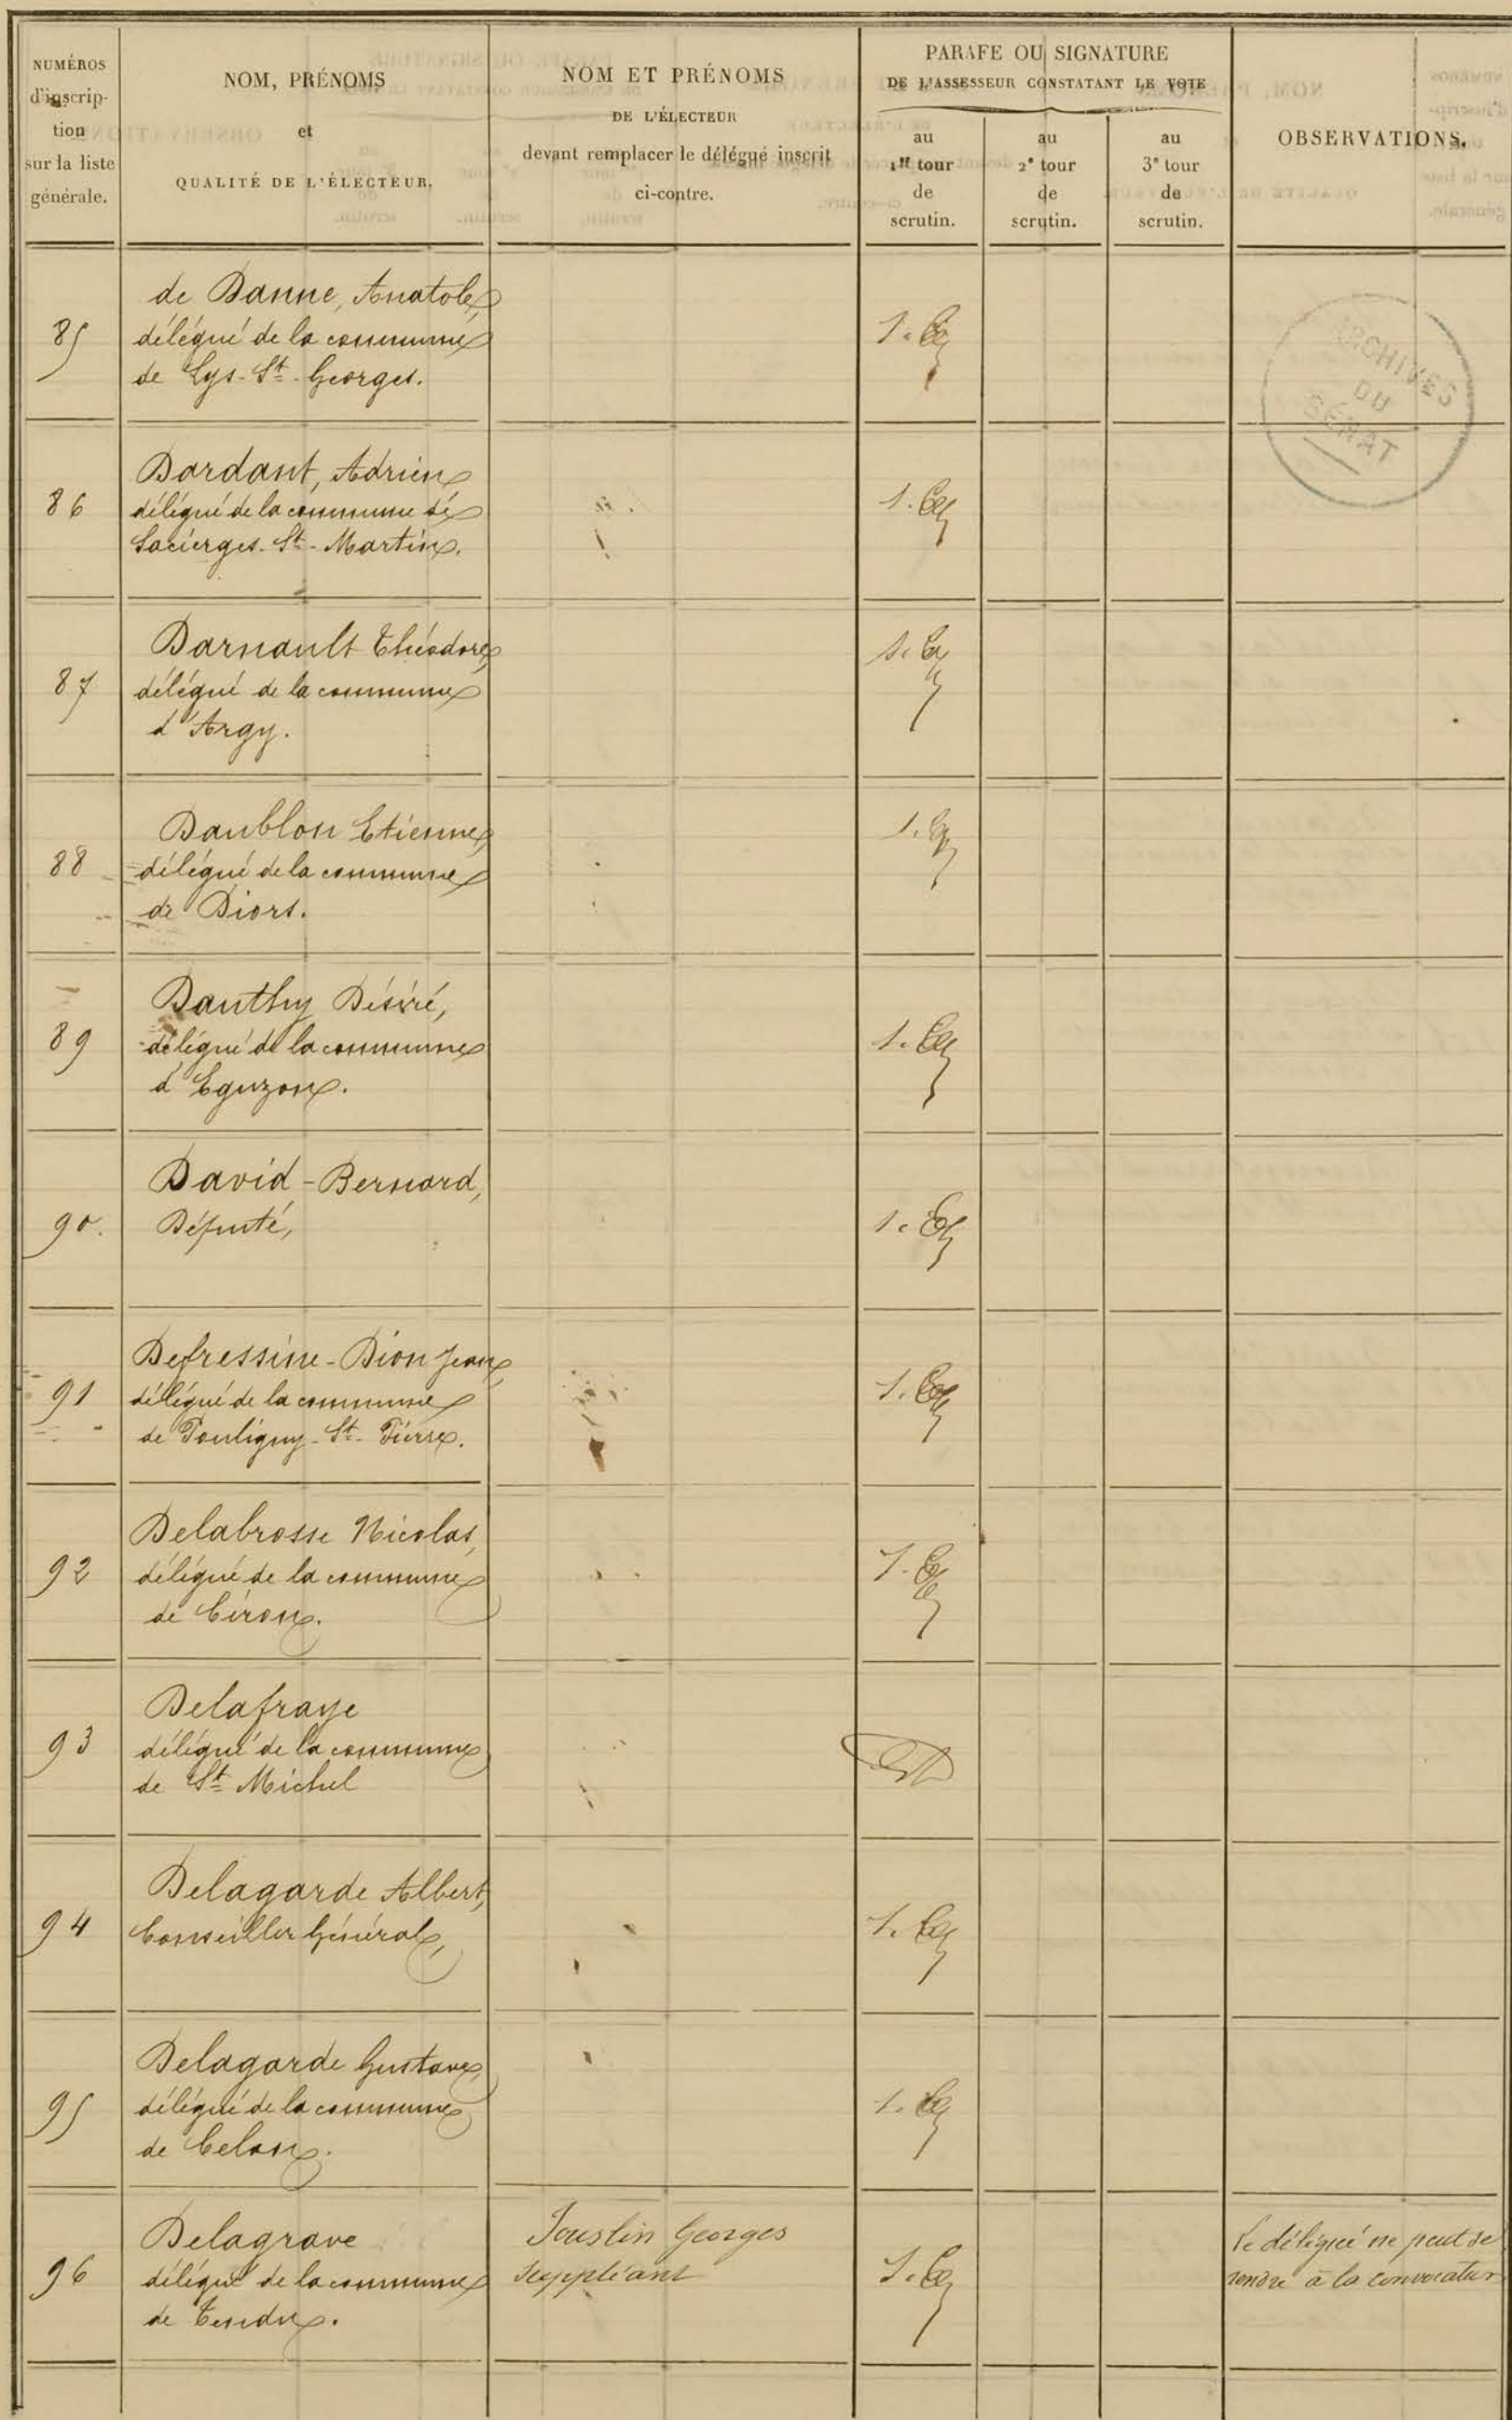 NUMÉROS
d'inscrip-
tion
sur la liste
générale.
NOM, PRÉNOMS
et
QUALITÉ DE L'ÉLECTEUR.
NOM ET PRÉNOMS
DE L'ÉLECTEUR
devant remplacer le délégué inscrit
ci-contre.
PARAFE OU SIGNATURE
DE L'ASSESSEUR CONSTATANT LE VOTE
au
1er tour
de
scrutin.
au
2e tour
de
scrutin.
au
3e tour
de
scrutin.
OBSERVATIONS.
ARCHIVES
DU
SÉNAT
85
de Danne, Anatole,
délégué de la commune
de Lys-St-Georges.
86
Dardant, Adrien
délégué de la commune de
Sacierges-St-Martin.
87
Darnault Théodore,
délégué de la commune
d'Argy.
88
Daublon Etienne,
délégué de la commune
de Diors.
89
Dauthy Désiré,
délégué de la commune
d'Eguzon.
90.
David-Bernard,
Député,
91
Defressine-Dion Jean,
délégué de la commune
de Pouligny-St-Pierre.
92
Delabrosse Nicolas,
délégué de la commune
de Ciron.
93
Delafraye
délégué de la commune
de St Michel
94
Delagarde Albert,
Conseiller Général,
95
Delagarde Gustave,
délégué de la commune
de Celon.
96
Delagrave
délégué de la commune
de Tendu.
Jouslin Georges
suppléant
Le délégué ne peut se
rendre à la convocation